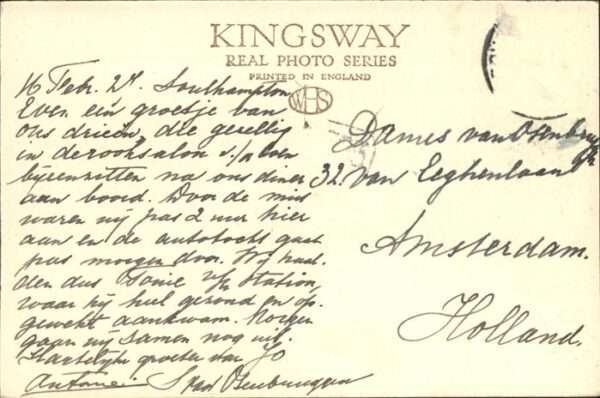 KINGSWAY
REAL PHOTO SERIES
PRINTED IN ENGLAND
WHS
16 Febr. Southampton
Even een groetje van
ons drieën, die gezellig
in de rooksalon even
bijeenzitten na ons diner
aan boord. Door de mist
waren wij pas 2 uur hier
aan en de autotocht gaat
pas morgen door. Wij haal-
den dus station,
waar hij heel gezond en op-
gewekt aankwam. Morgen
gaan wij samen nog uit.
Hartelijke groeten van Jo
Antoine
S van Ossenbruggen
Dames van Ossenbruggen
32. van Eeghenlaan
Amsterdam.
Holland.